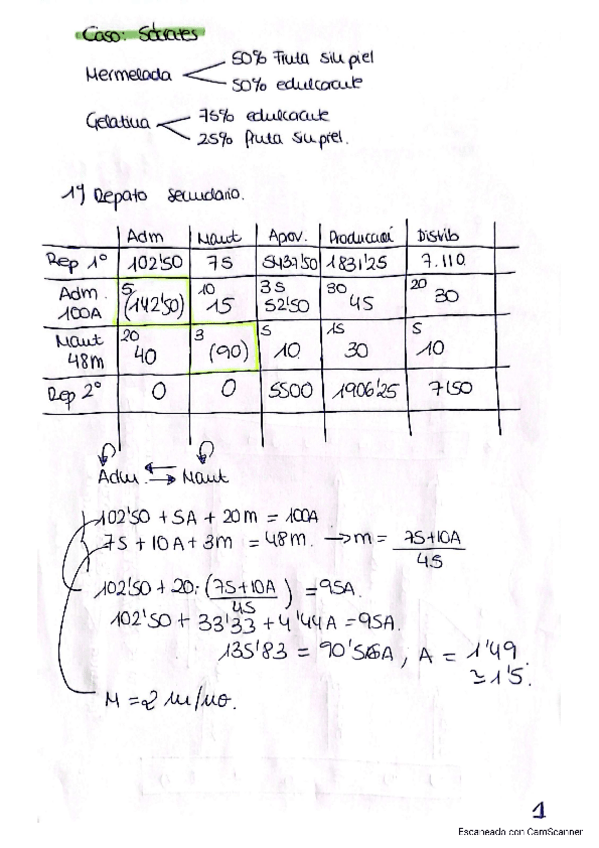 Caso: Sócrates
Mermelada
50% fruta sin piel
50% edulcorante
Gelatina
75% edulcorante
25% fruta sin piel.
1º) Reparto secundario.
Adm Mant Apov. Producció Distrib
Rep 1º 102'50 75 5437'50 1831'25 7.110.
Adm. 100A 5 (142'50) 10 15 35 52'50 30 45 20 30
Mant 48m 20 40 3 (90) 5 10 15 30 5 10
Rep 2º 0 0 5500 1906'25 7150
Adm. Mant
102'50 + 5A + 20m = 100A
75 + 10A + 3m = 48m. → m = 75+10A / 45
102'50 + 20. (75+10A / 45) = 95A.
102'50 + 33'33 + 4'44A = 95A.
135'83 = 90'56A, A = 1'49
≃ 1'5.
M = 2 m/mo.
1
Escaneado con CamScanner